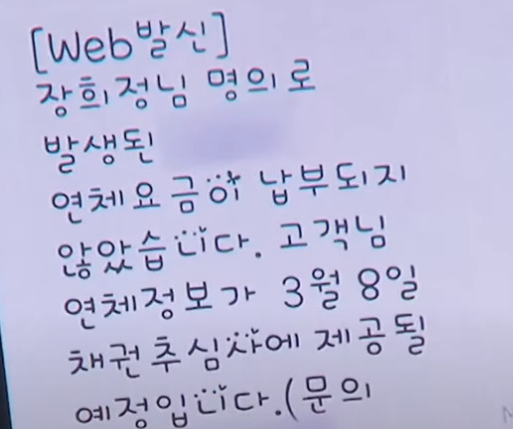 [Web발신]
장희정님 명의로
발생된
연체요금이 납부되지
않았습니다. 고객님
연체정보가 3월 8일
채권추심사에 제공될
예정입니다.(문의